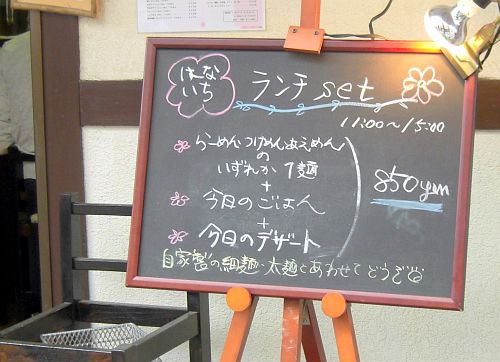 はな
いち
ランチ set
11:00〜15:00
らーめん、つけめん、あえめん
の
いずれか 1麺
+
今日のごはん
+
今日のデザート
850yen
自家製の細麺・太麺とあわせてどうぞ